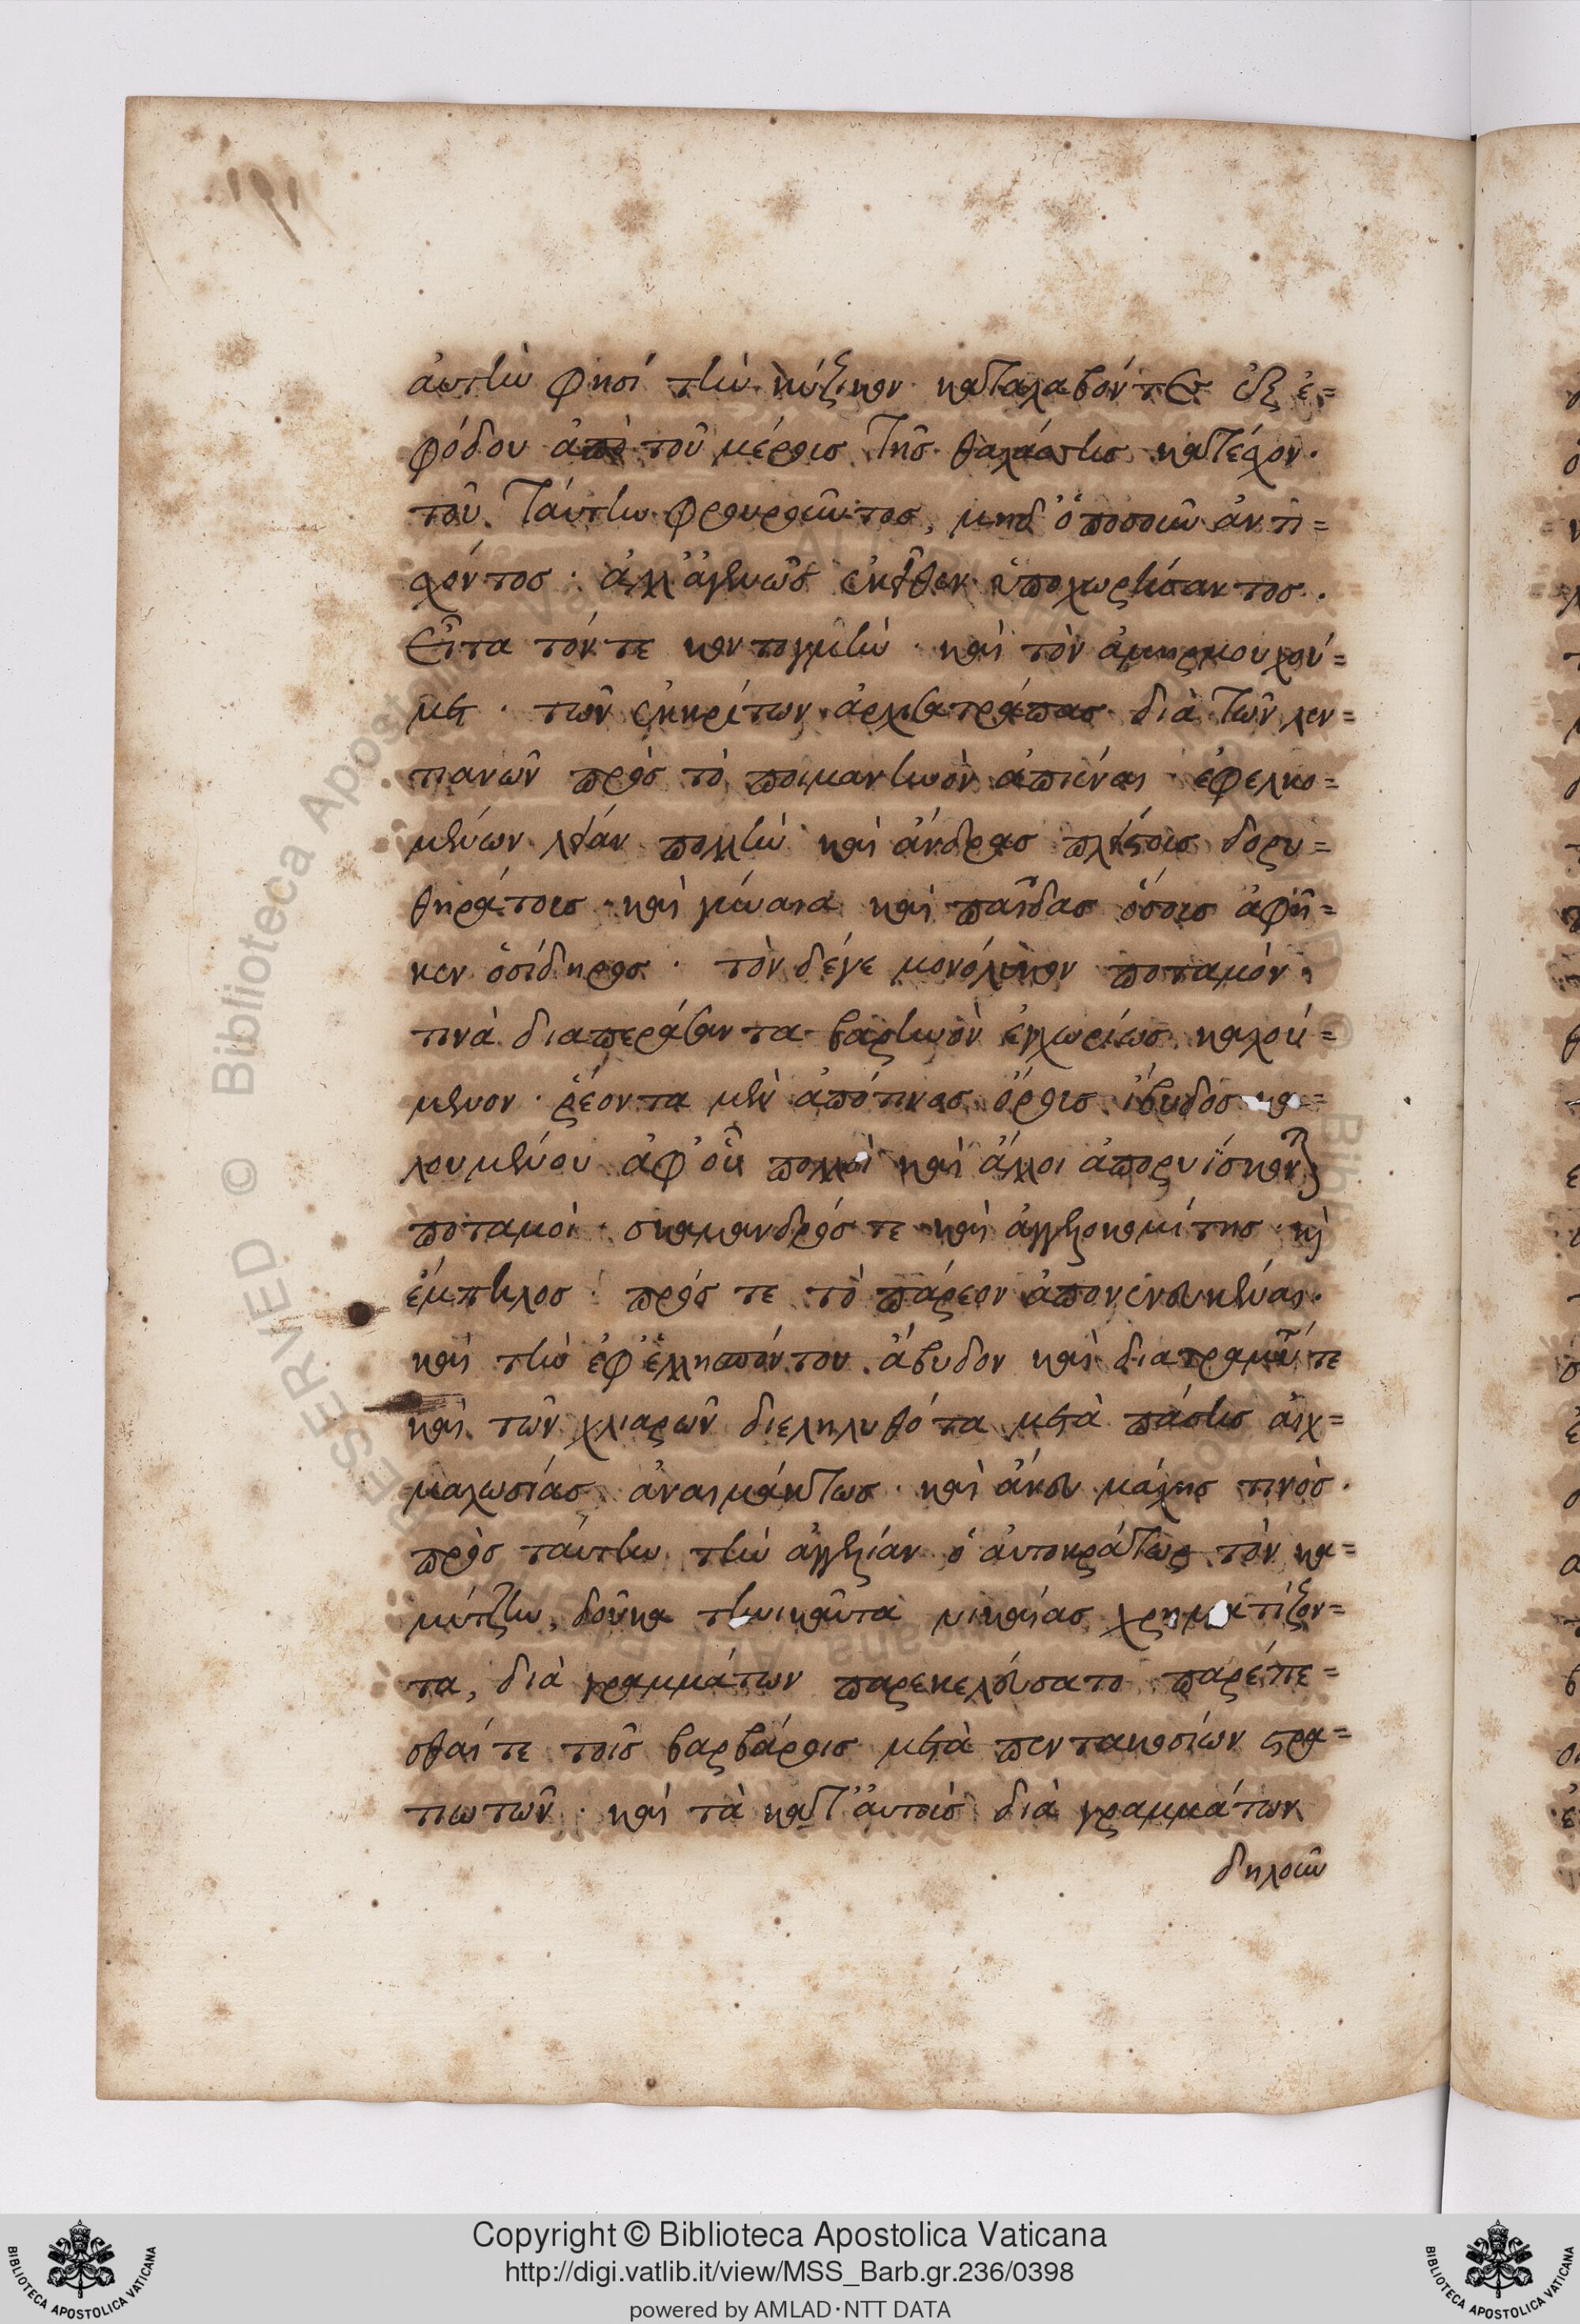 αὐτὴν φησί τὴν κύζικον καταλαβόντες ἐξ ἐ=
φόδου ἀπὸ τοῦ μέρους τῆς θαλάσσης κατέσχον.
τοῦ ταύτην φρουροῦντος, μηδ' ὁποσοῦν ἀντι=
σχόντος· ἀλλ' ἀγεννῶς ἐκεῖθεν ὑποχωρήσαντος.
Εἶτα τόν τε κοντογμὴν· καὶ τὸν ἀμηρμουχού=
μετ· τῶν ἐκκρίτων ἀρχισατράπας διὰ τῶν λεν=
τιανῶν πρὸς τὸ ποιμανηνὸν ἀπιέναι ἐφελκο=
μένων λείαν πολλὴν καὶ ἄνδρας πλείστοις δορυ=
θηράτους· καὶ γύναια καὶ παῖδας ὅσους ἀφῆ=
κεν ὁ σίδηρος· τὸν δέ γε μονόλυκον ποταμόν
τινὰ διαπεράσαντα βαρηνὸν ἐγχωρίως καλού=
μενον· ῥέοντα μὲν ἀπό τινος ὄρους ἰβηδος κα=
λουμένου ἀφ' οὗ πολλοὶ καὶ ἄλλοι ἀπορυΐσκονται
ποταμοὶ· σκαμανδρός τε καὶ ἀγγελοκομίτης· καὶ
ἔμπηλος· πρός τε τὸ πάρεον ἀπονενευκέναι.
καὶ τὴν ἐφ' ἑλλησπόντου ἄβυδον καὶ διατραμῦτε
καὶ τῶν χλιαρῶν διεληλυθότα μετὰ πάσης αἰχ=
μαλωσίας ἀναιμάκτως· καὶ ἄνευ μάχης τινὸς.
πρὸς ταύτην τὴν ἀγγελίαν ὁ αὐτοκράτωρ τὸν κα=
μύτζην, δοῦκα τηνικαῦτα νικαίας χρηματίζον=
τα, διὰ γραμμάτων παρεκελεύσατο παρέπε=
σθαί τε τοῖς βαρβάροις μετὰ πεντακοσίων στρα=
τιωτῶν· καὶ τὰ κατ' αὐτοὺς διὰ γραμμάτων
δηλοῦν
Copyright © Biblioteca Apostolica Vaticana
http://digi.vatlib.it/view/MSS_Barb.gr.236/0398
powered by AMLAD·NTT DATA
BIBLIOTECA APOSTOLICA VATICANA
BIBLIOTECA APOSTOLICA VATICANA